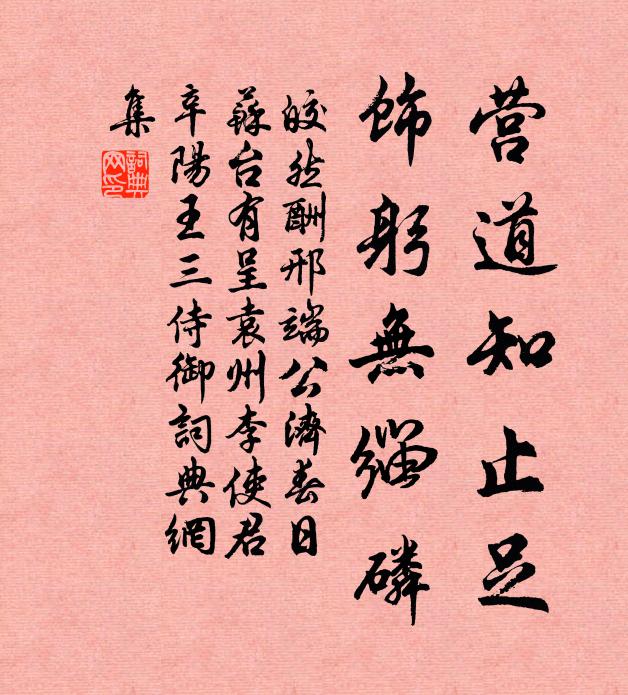 营道知止足
饰躬無缁磷
皎然酬邢端公濟春日
蘇台有呈袁州李使君
辛陽王三侍御詞典網
集
詞典
网印